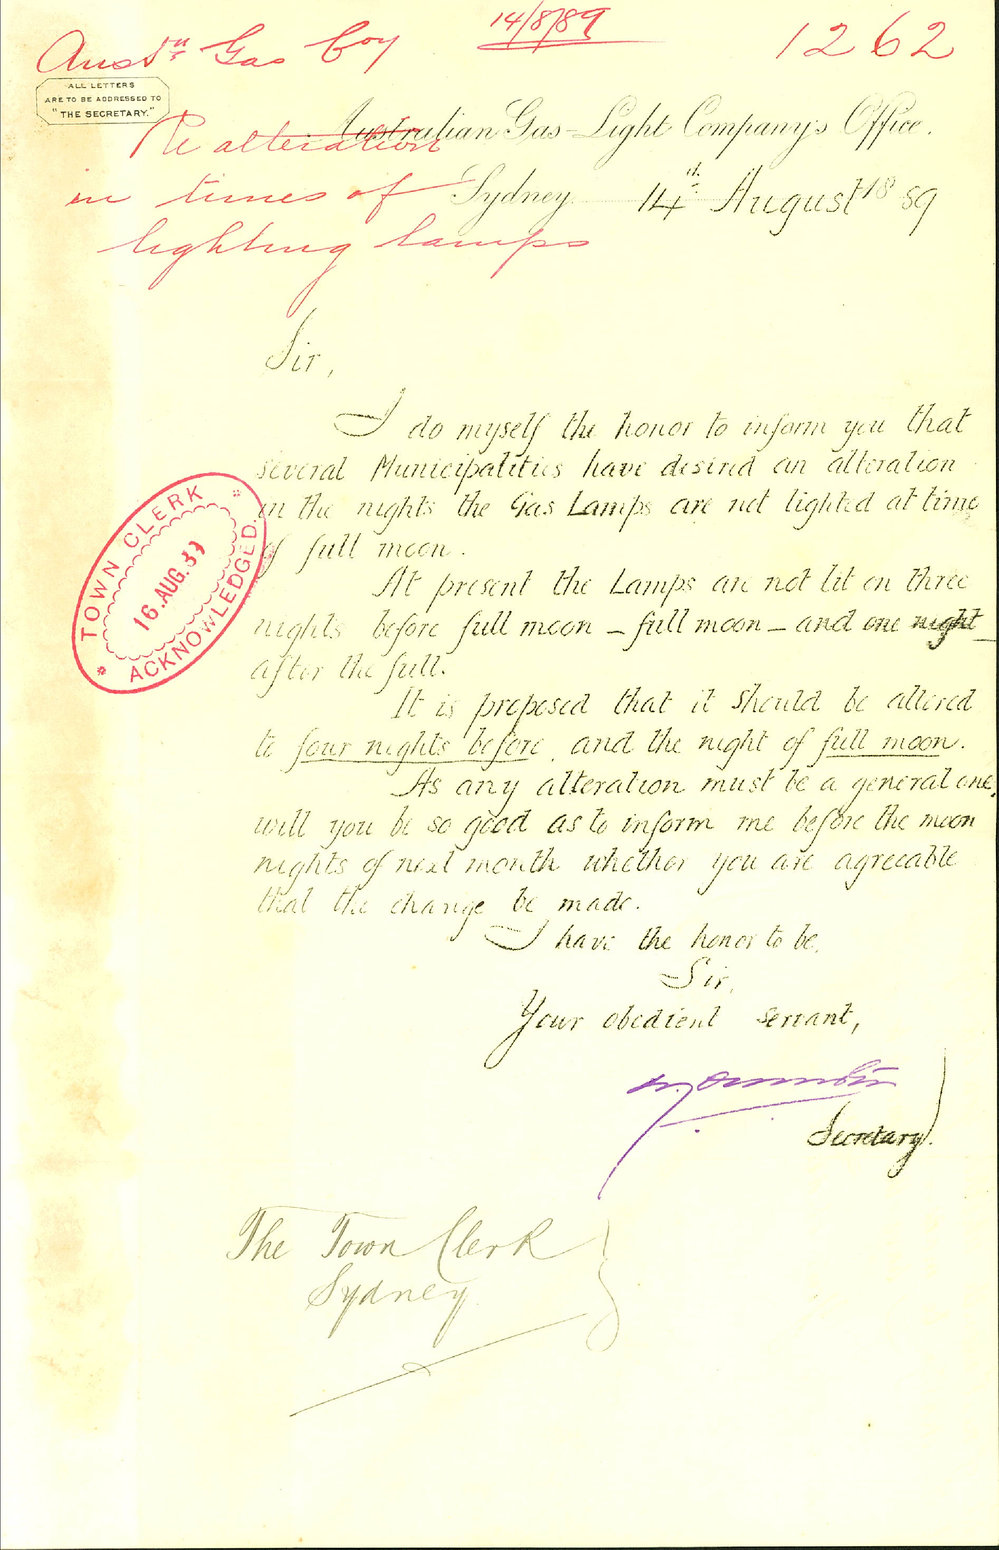 Aust.n Gas Coy
14/8/89
1262
ALL LETTERS
ARE TO BE ADDRESSED TO
"THE SECRETARY."
Re alteration
in times of
lighting lamps
Australian Gas-Light Company's Office.
Sydney 14th August 1889
Sir,
I do myself the honor to inform you that
several Municipalities have desired an alteration
in the nights the Gas Lamps are not lighted at time
of full moon.
At present the Lamps are not lit on three
nights before full moon – full moon – and one night
after the full.
It is proposed that it should be altered
to four nights before, and the night of full moon.
As any alteration must be a general one,
will you be so good as to inform me before the moon
nights of next month whether you are agreeable
that the change be made.
I have the honor to be,
Sir,
Your obedient servant,
Secretary.
TOWN CLERK
16.AUG.89
ACKNOWLEDGED.
The Town Clerk
Sydney